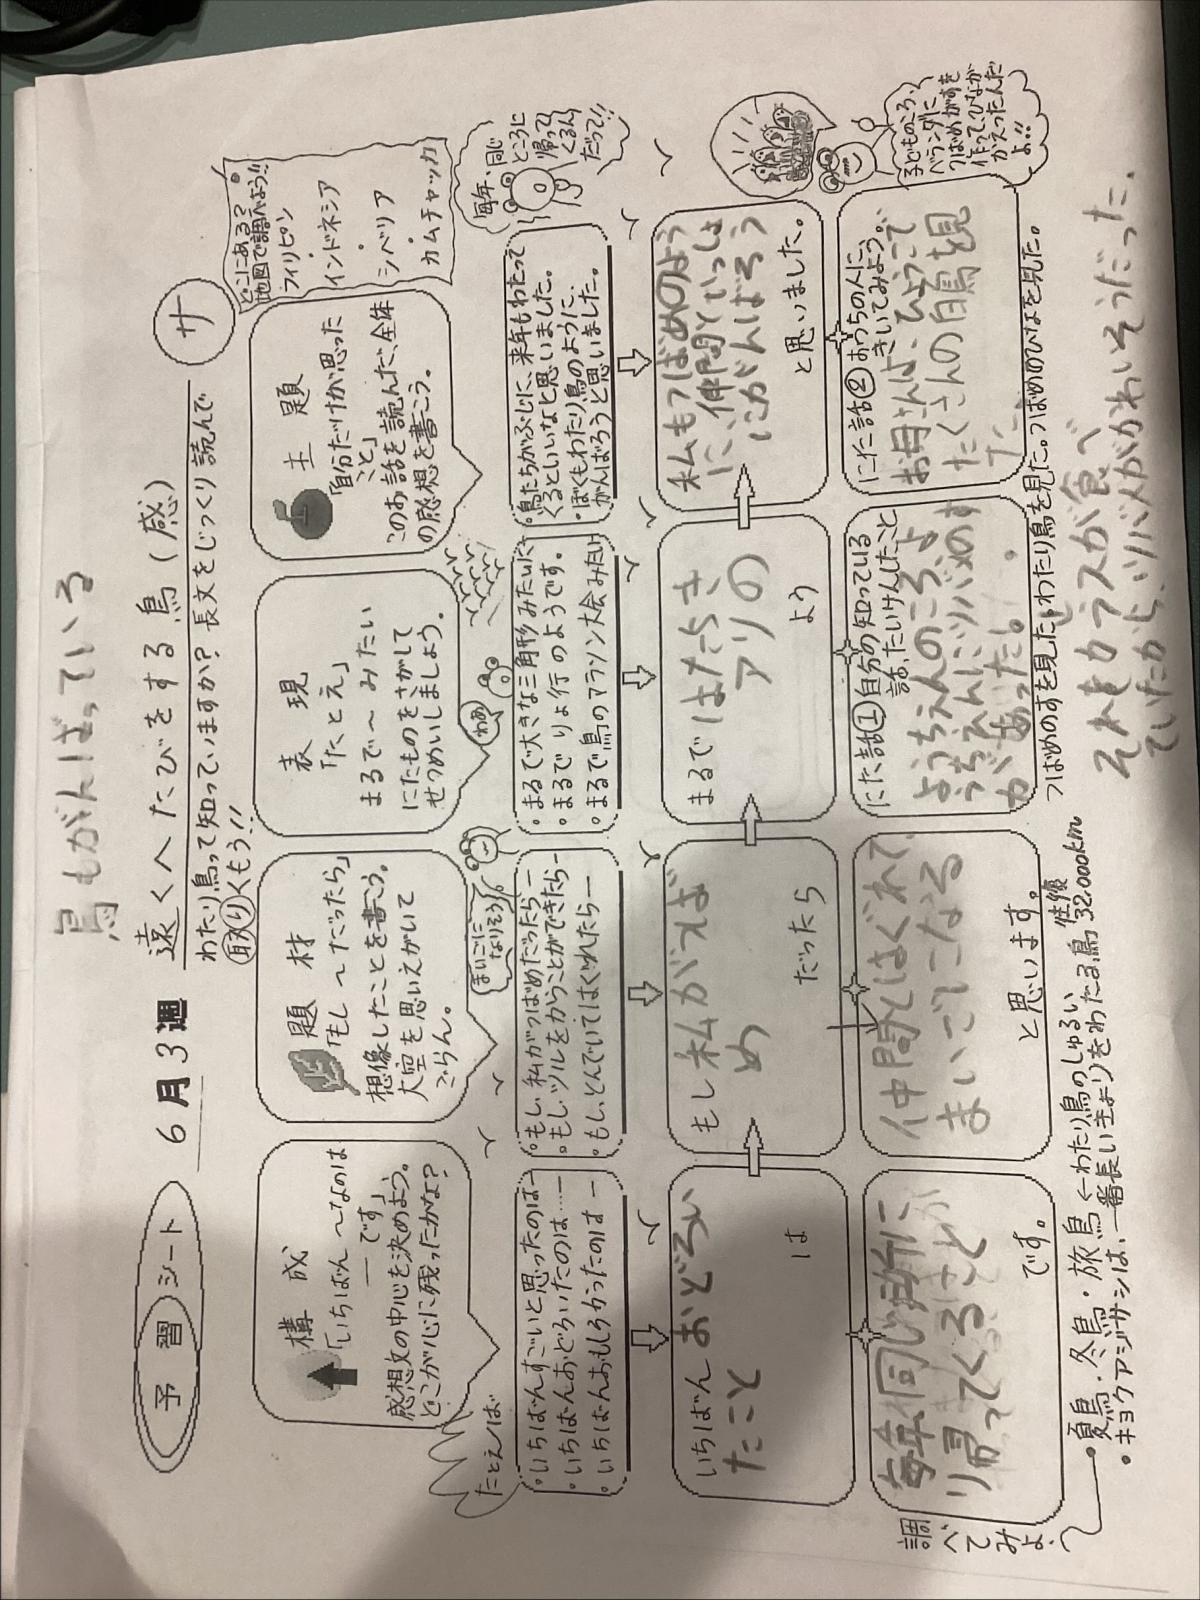 鳥もがんばっている
予習シート
6月3週
遠くへたびをする鳥(感)
サ
わたり鳥って知っていますか?長文をじっくり読んで
取りくもう!!
どこにある?
地図で調べよう!!
フィリピン
インドネシア
シベリア
カムチャッカ
構成
「いちばん〜なのは
―です」
感想文の中心を決めよう。
どこが心に残ったかな?
題材
「もし〜だったら」
想像したことを書こう。
大空を思いえがいて
ごらん。
表現
「たとえ」
まるで〜みたい
にたものをさがして
せつめいしましょう。
主題
「自分だけが思った
こと」
このお話を読んだ、全体
の感想を書こう。
たとえば
まいごに
なりそう
わあ
毎年、同じ
ところに
帰って
くるん
だって!!
・いちばんすごいと思ったのは―
・いちばんおどろいたのは……―
・いちばんおもしろかったのは―
・もし、私がつばめだったら―
・もし、ツルをかうことができたら―
・もし、とんでいてはぐれたら―
・まるで大きな三角形みたいに
・まるでりょ行のようです。
・まるで鳥のマラソン大会みたい
・鳥たちがぶじに、来年もわたって
くるといいなと思いました。
・ぼくもわたり鳥のように、
がんばろうと思いました。
いちばんおどろい
たこと
は
もし私がつば
め
だったら
まるではたらき
アリの
よう
私もつばめのよう
に、仲間といっしょ
にがんばろう
と思いました。
子どものころ、
ベランダに
つばめがすを
作って、ひなが
かえったんだ
よ!!
毎年同じ場所に
帰ってくること
です。
仲間とはぐれて
まいごになる
と思います。
にた話① 自分の知っている
話、たいけんしたこと
ようちえんのころ、よ
うちえんにツバメのす
があった。
にた話② おうちの人に、
きいてみよう。
お母さんは、ひょうこで
たくさんの白鳥を見
た。
つばめのすを見た。わたり鳥を見た。つばめのひなを見た。
それをカラスが食べ
ていたから、ツバメがかわいそうだった。
調べてみよ
・夏鳥・冬鳥・旅鳥 ←わたり鳥のしゅるい
・キョクアジサシは、一番長いきょりをわたる鳥 往復 32.000km